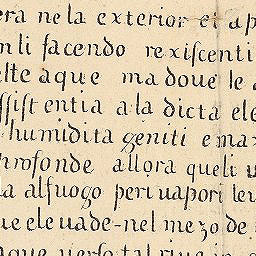 era nela exterior et ap
nli facendo rexiscenti
elte aque ma doue le
ssistentia ala dicta ele
humidita geniti e max
profonde allora queli u
la alfuogo peri uapori leu
ue ele uade-nel mezo de
aque uerso tal riue in